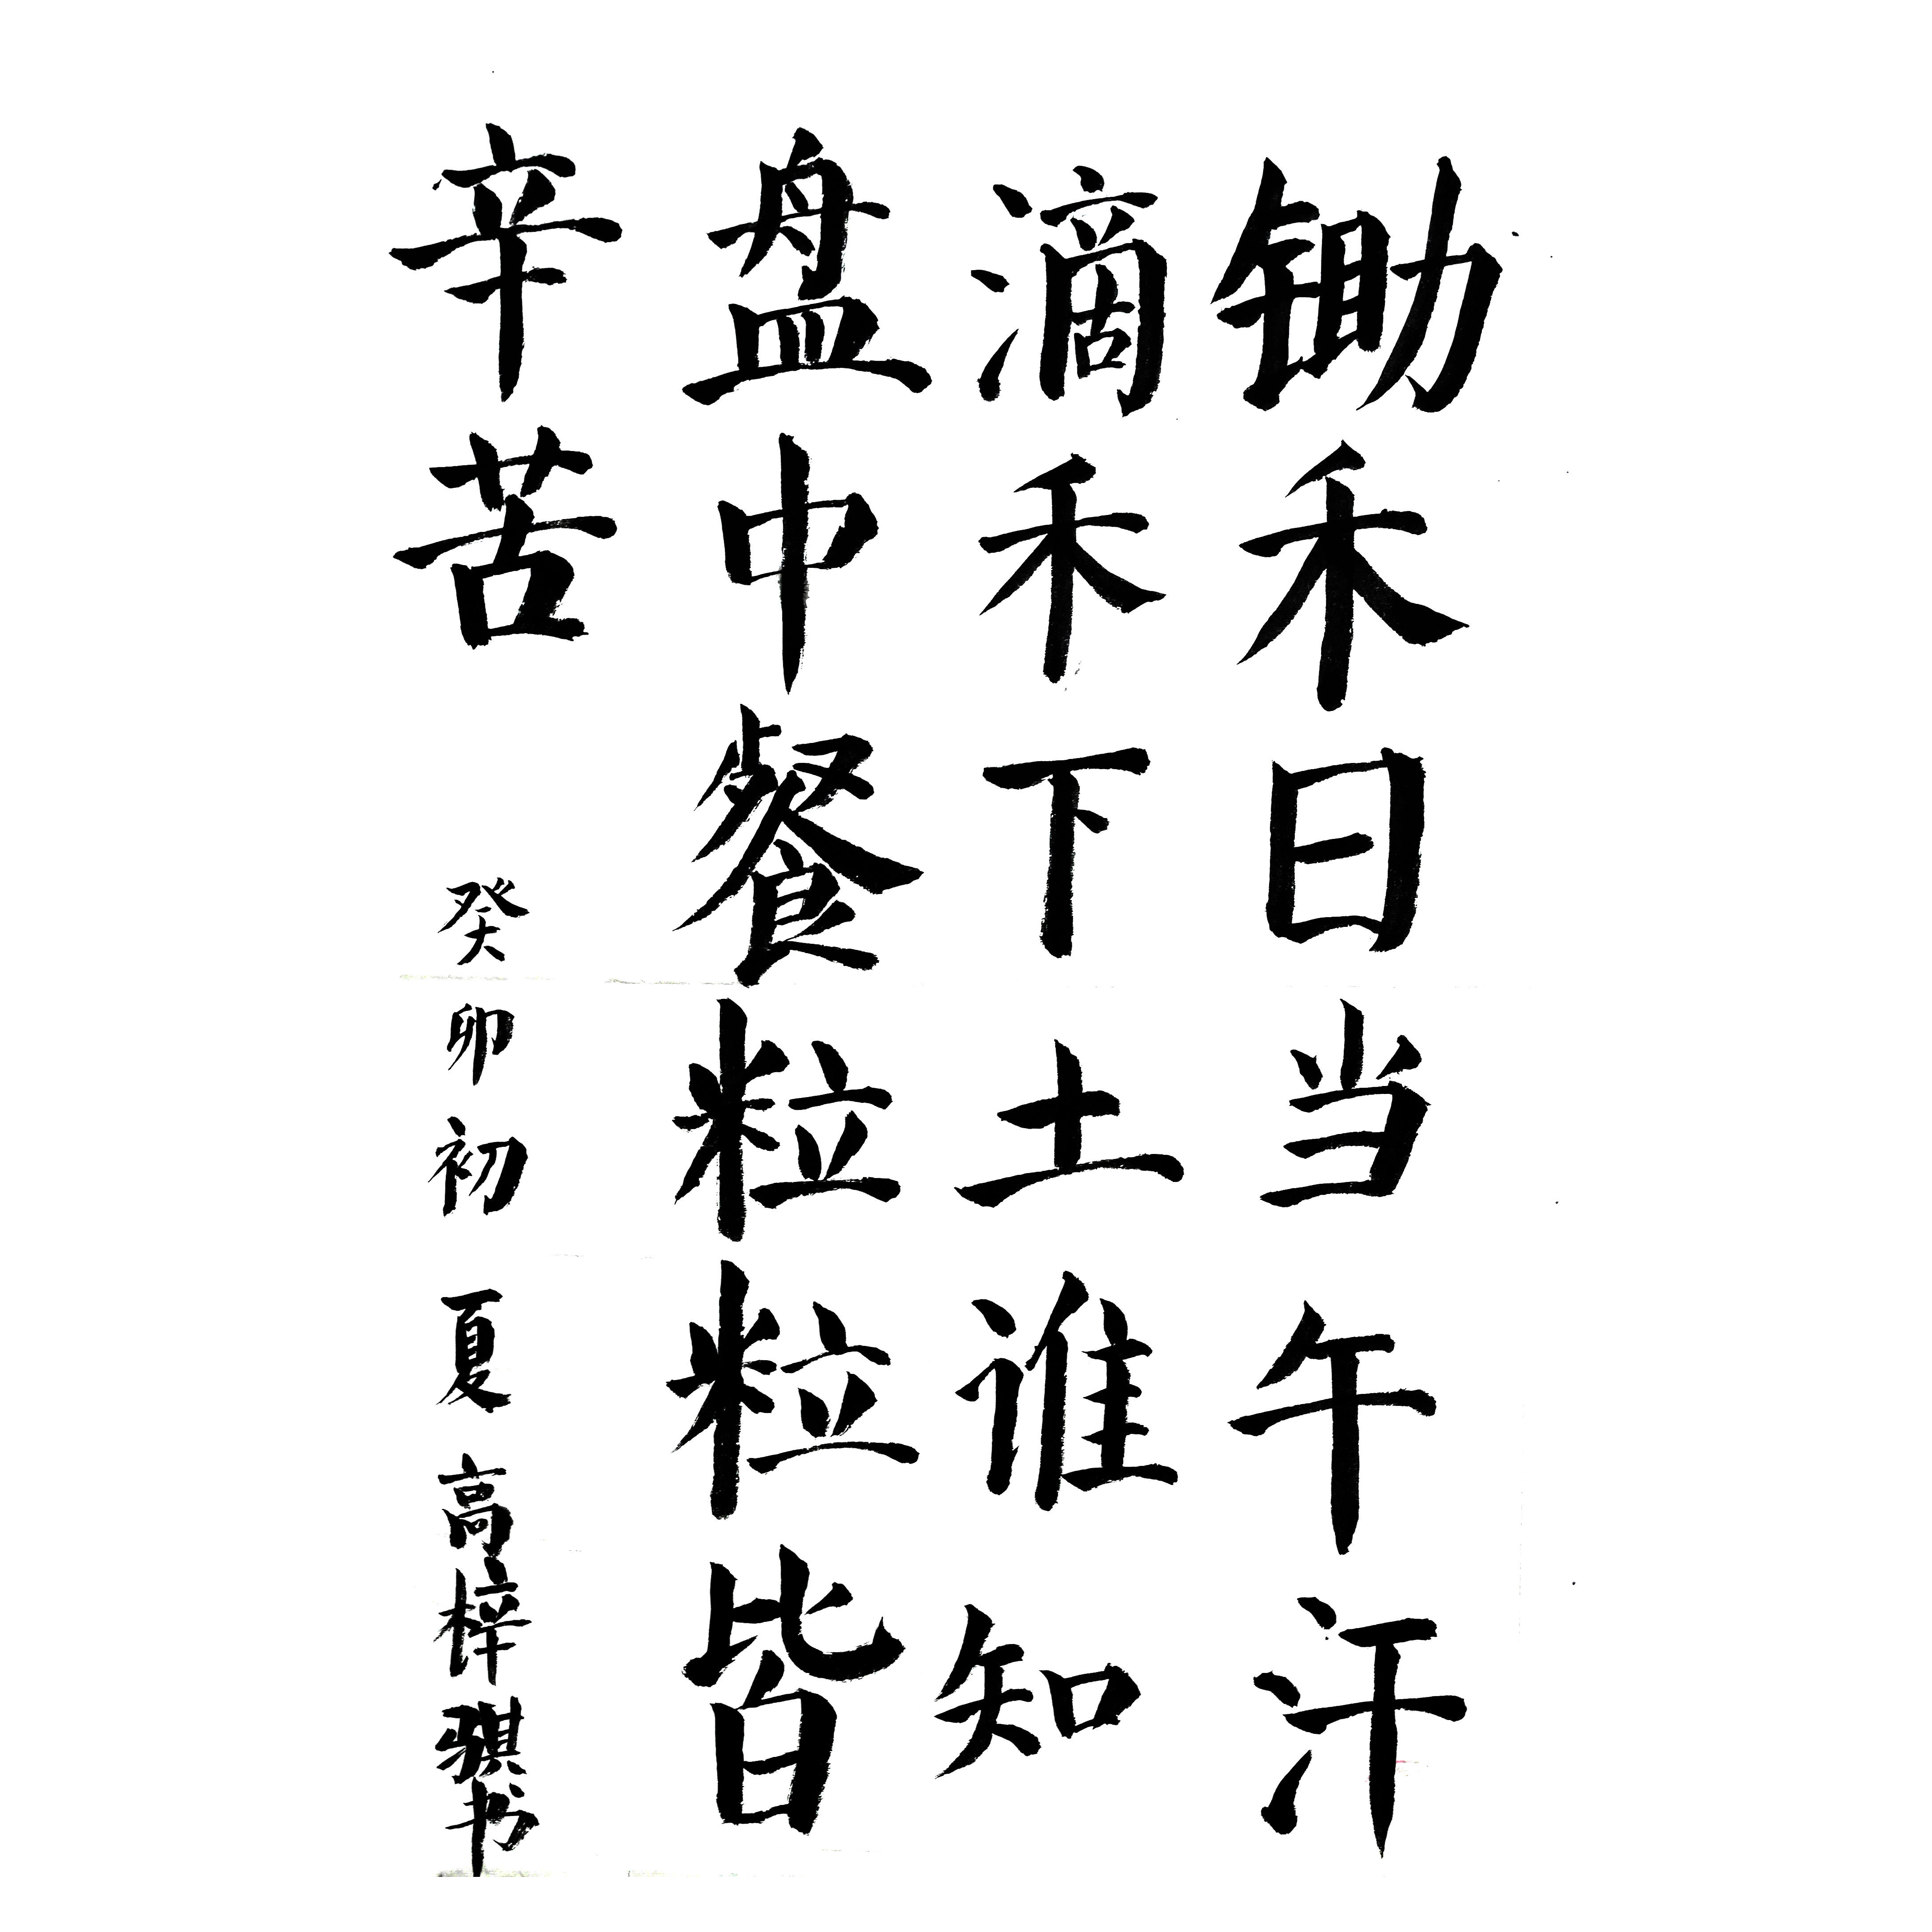 锄禾日当午汗
滴禾下土谁知
盘中餐粒粒皆
辛苦
癸卯初夏高梓骐书